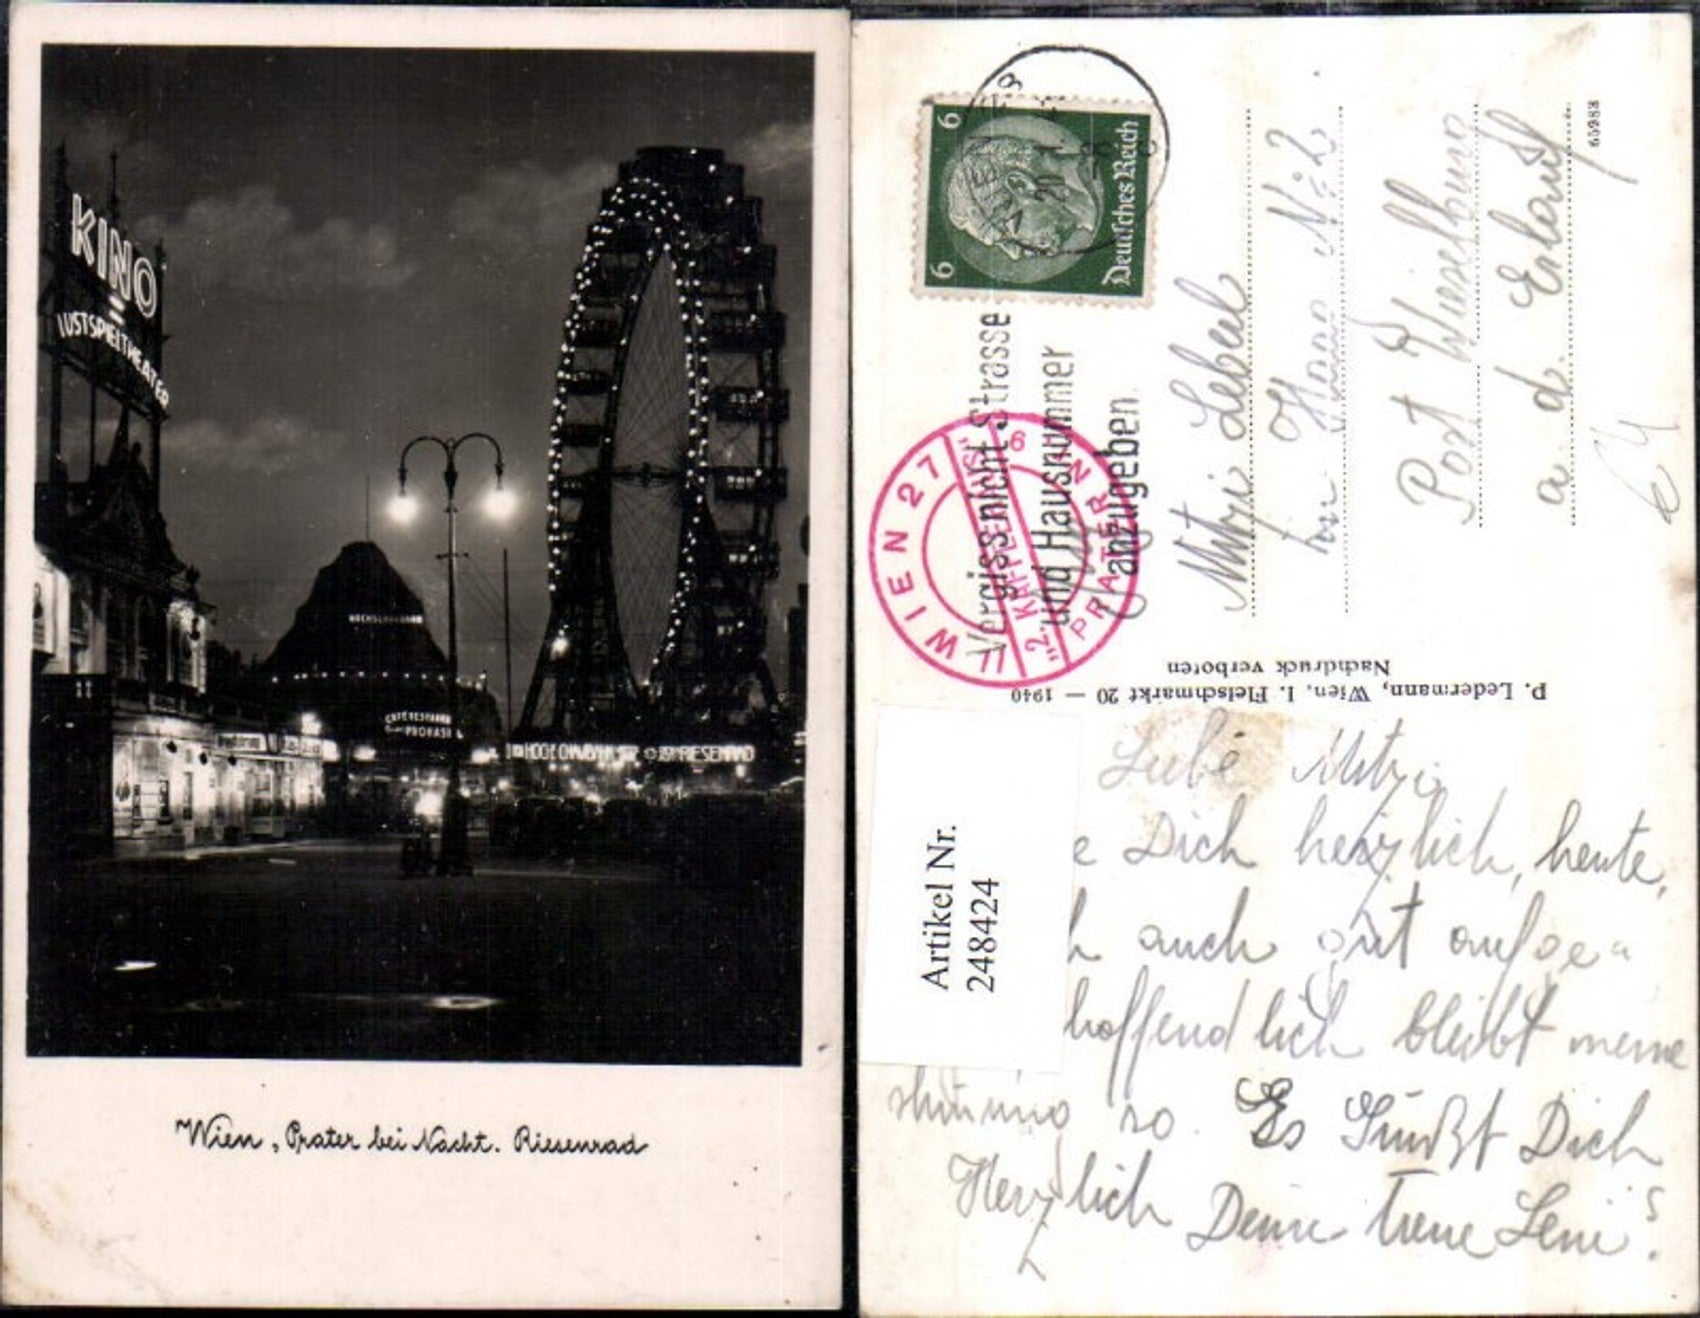 KINO
LUSTSPIELTHEATER
HOCHSCHAUBAHN
CAFÉ RESTAURANT
PROHASKA
RIESENRAD
Wien, Prater bei Nacht. Riesenrad
6
6
Deutsches Reich
Vergiss nicht Strasse
und Hausnummer
anzugeben
II WIEN 27
"2. KAFFEEHAUS"
PRATER
Mitzi
Nr. 2
Post Wieselburg
a. d. Erlauf
65988
P. Ledermann, Wien, I. Fleischmarkt 20 — 1940
Nachdruck verboten
Artikel Nr.
248424
Liebe Mitzi
Dich herzlich, heute,
auch gut aufge
hoffendlich bleibt meine
so. Es Grüßt Dich
Herzlich Deine treue Leni